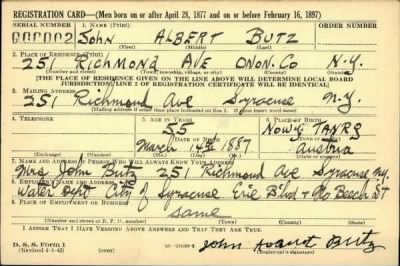 REGISTRATION CARD—(Men born on or after April 28, 1877 and on or before February 16, 1897)
SERIAL NUMBER 1. NAME (Print) ORDER NUMBER
U000002 JOHN ALBERT BUTZ
(First) (Middle) (Last)
2. PLACE OF RESIDENCE (Print)
251 RICHMOND AVE ONON. CO N.Y.
(Number and street) (Town, township, village, or city) (County) (State)
[THE PLACE OF RESIDENCE GIVEN ON THE LINE ABOVE WILL DETERMINE LOCAL BOARD
JURISDICTION; LINE 2 OF REGISTRATION CERTIFICATE WILL BE IDENTICAL]
3. MAILING ADDRESS
251 Richmond Ave Syracuse N.Y.
[Mailing address if other than place indicated on line 2. If same insert word same]
4. TELEPHONE 5. AGE IN YEARS 6. PLACE OF BIRTH
55 NOWG TANRG
DATE OF BIRTH (Town or county)
March 14th 1887 Austria
(Exchange) (Number) (Mo.) (Day) (Yr.) (State or country)
7. NAME AND ADDRESS OF PERSON WHO WILL ALWAYS KNOW YOUR ADDRESS
Mrs John Butz 251 Richmond Ave Syracuse N.Y.
8. EMPLOYER'S NAME AND ADDRESS
Water Dept City of Syracuse Erie Blvd & No Beech ST
9. PLACE OF EMPLOYMENT OR BUSINESS
same
(Number and street or R. F. D. number) (Town) (County) (State)
I AFFIRM THAT I HAVE VERIFIED ABOVE ANSWERS AND THAT THEY ARE TRUE.
D. S. S. Form 1
(Revised 4-1-42) (over)
John Albert Butz
(Registrant's signature)